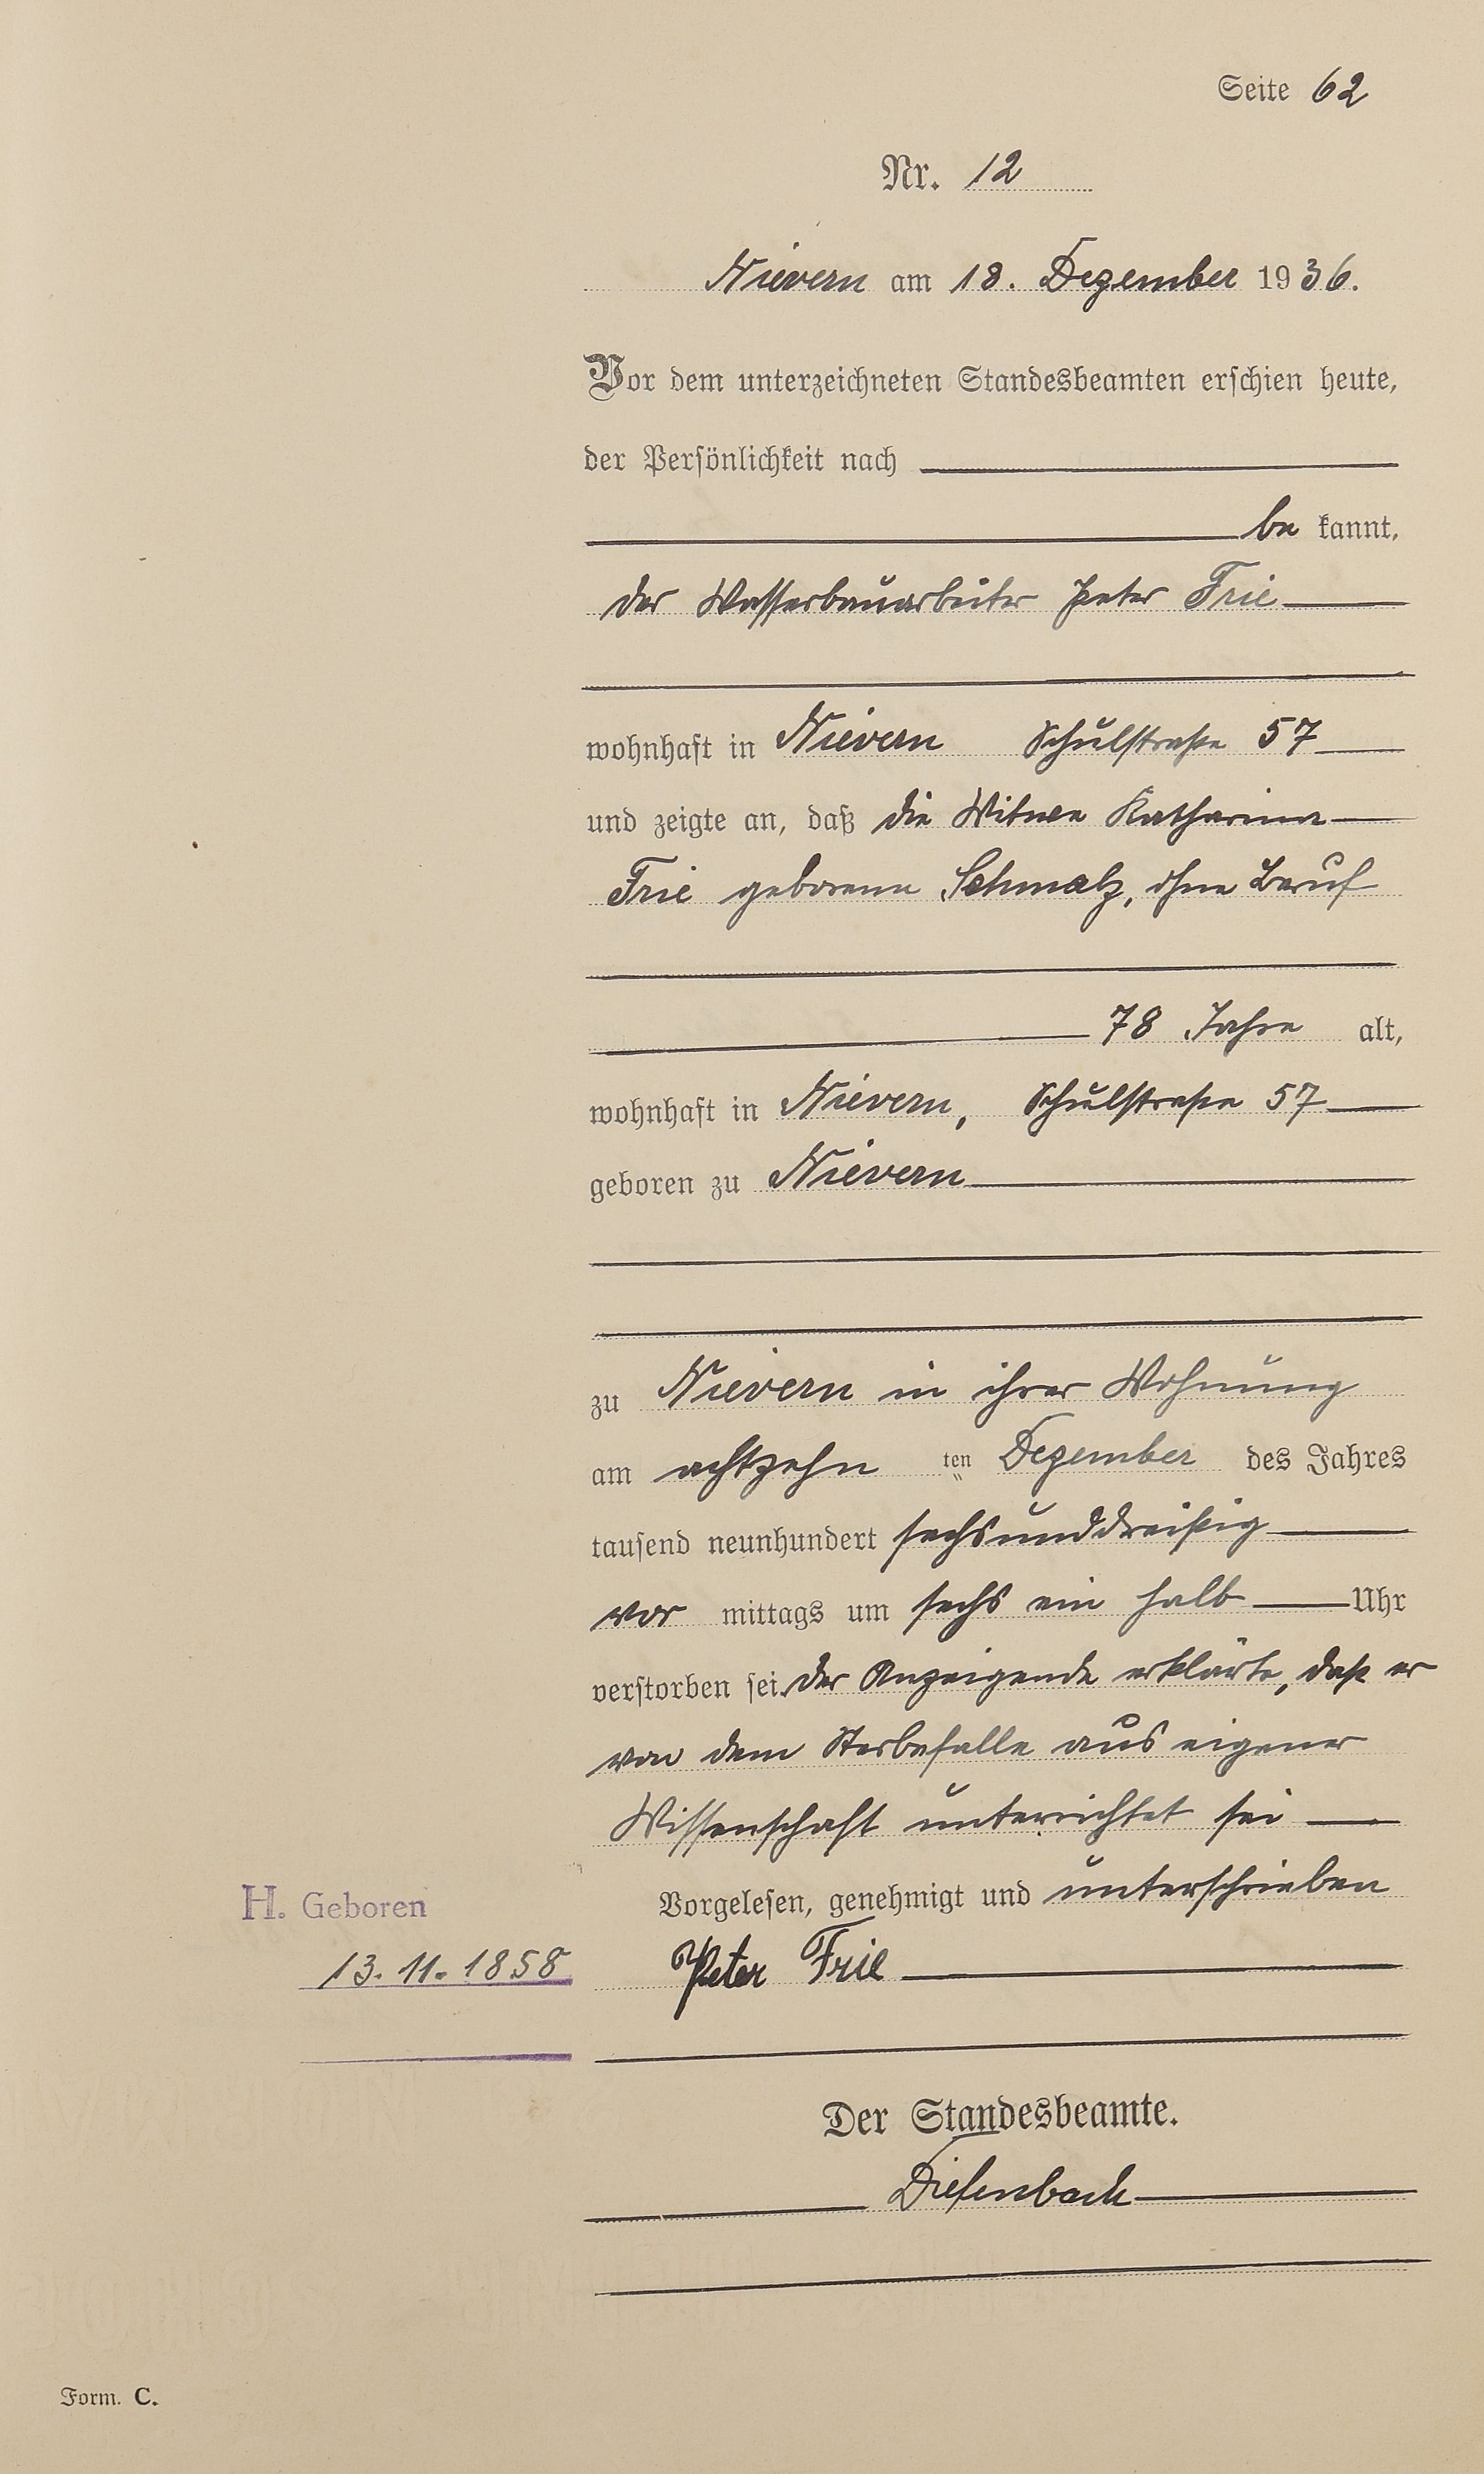 Seite 62
Nr. 12
Nievern am 18. Dezember 1936.
Vor dem unterzeichneten Standesbeamten erschien heute,
der Persönlichkeit nach
be kannt,
der Wasserbauarbeiter Peter Frie
wohnhaft in Nievern Schulstraße 57
und zeigte an, daß die Witwe Katharina
Frie geborene Schmalz, ohne Beruf
78 Jahre alt,
wohnhaft in Nievern, Schulstraße 57
geboren zu Nievern
zu Nievern in ihrer Wohnung
am achtzehn ten Dezember des Jahres
tausend neunhundert sechsunddreißig
vor mittags um sechs ein halb Uhr
verstorben sei. Der Anzeigende erklärte, daß er
von dem Sterbefalle aus eigener
Wissenschaft unterrichtet sei
Vorgelesen, genehmigt und unterschrieben
Peter Frie
H. Geboren
13. 11. 1858
Der Standesbeamte.
Diefenbach
Form. C.